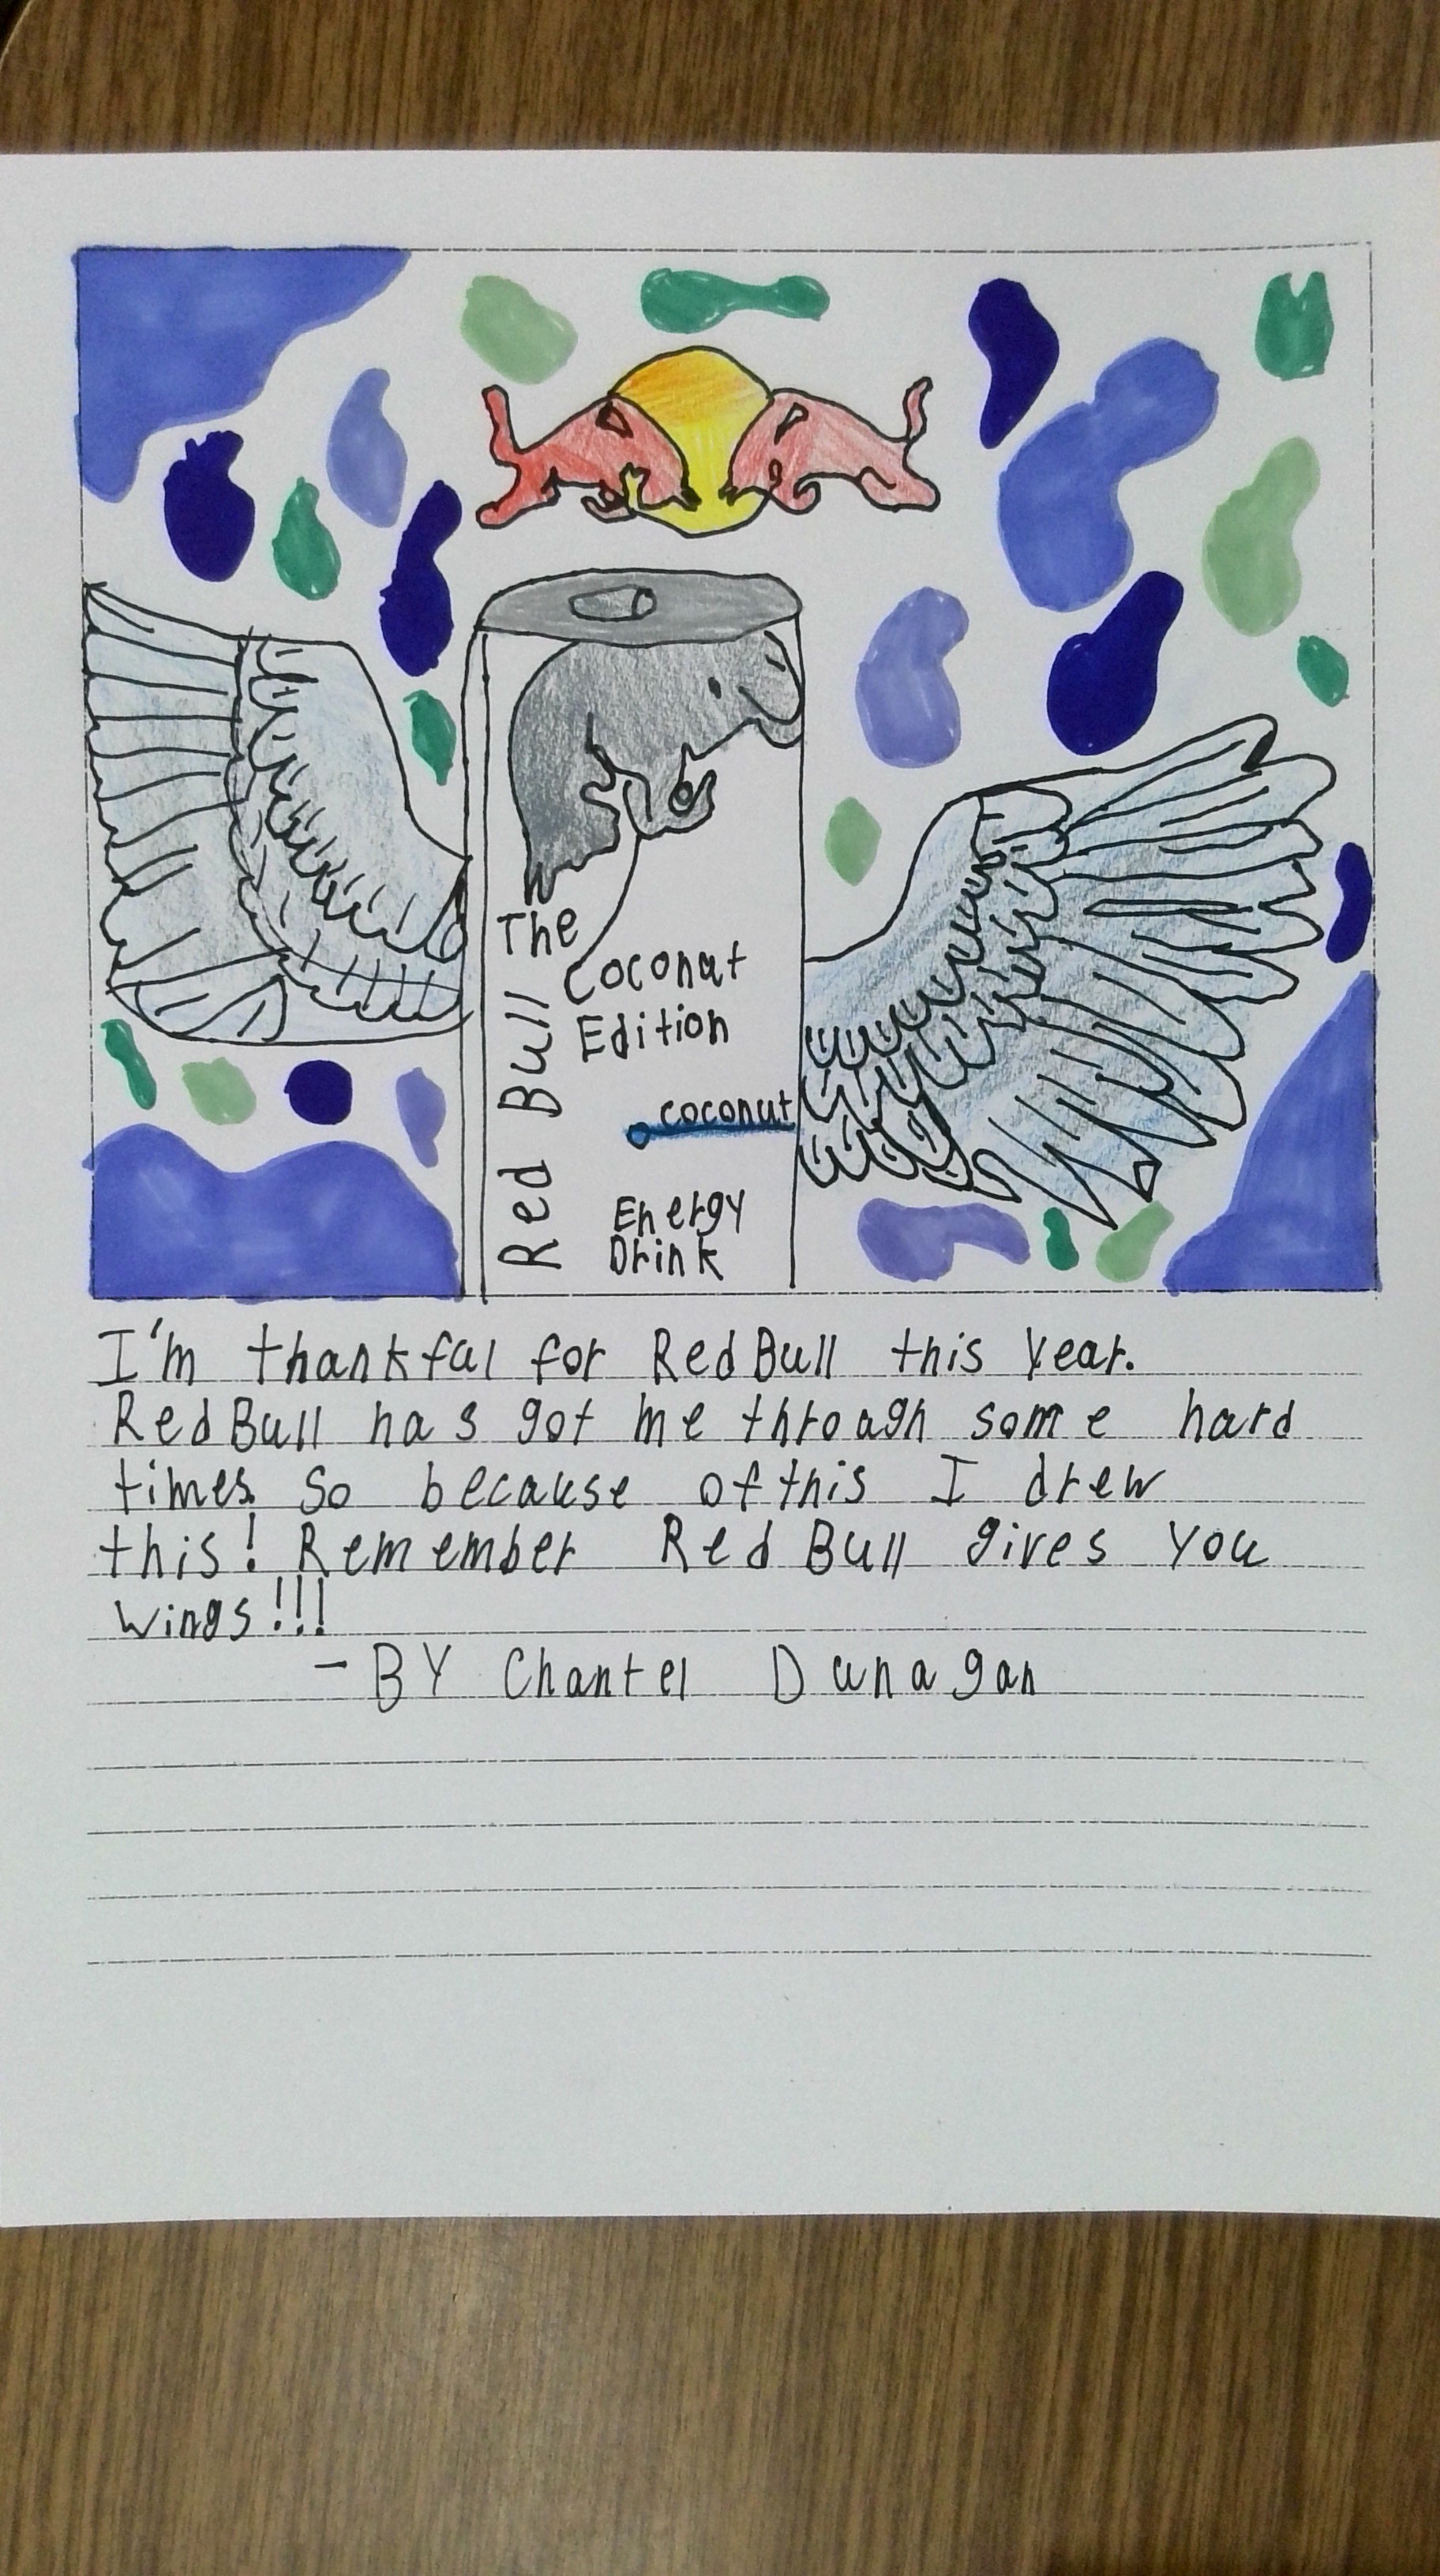 The
Coconut
Edition
Red Bull
coconut
Energy
Drink
I'm thankful for RedBull this year.
RedBull has got me throagh some hard
times. So because of this I drew
this! Remember Red Bull gives you
wings!!!
- BY Chantel Dunagan